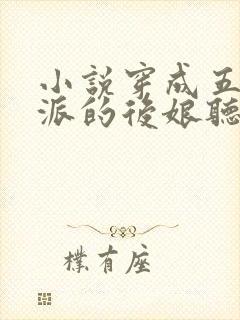 小說穿成五
派的後娘聽
樸有座